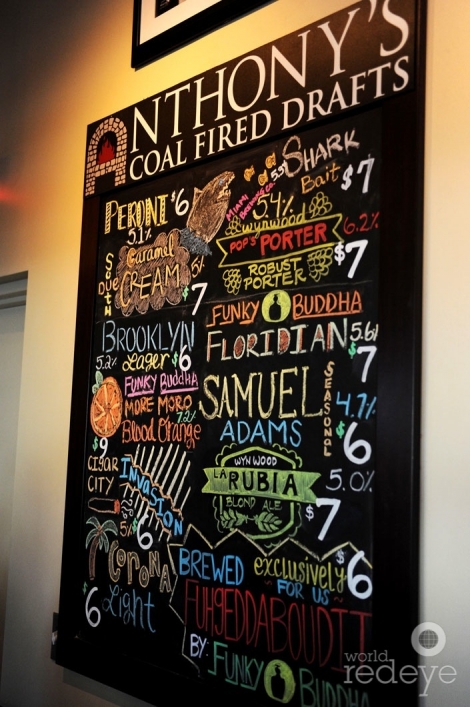 ANTHONY'S
COAL FIRED DRAFTS
PERONI $6
5.1%
DUE
SOUTH
Caramel
CREAM
5%
$7
BROOKLYN
5.2% Lager $6
FUNKY BUDDHA
MORE MORO
7.2%
Blood Orange
$9
CIGAR
CITY
INVASION
5% $6
CORONA
Light
$6
MIAMI
BREWING CO.
SHARK
Bait $7
5.4%
Wynwood
POP'S PORTER 6.2%
ROBUST
PORTER $7
FUNKY BUDDHA
FLORIDIAN 5.6%
$7
SAMUEL
ADAMS
SEASONAL
4.7%
$6
WYNWOOD
LA RUBIA
BLOND ALE
5.0%
$7
BREWED exclusively $6
FOR US
FUHGEDDABOUDIT
BY: FUNKY BUDDHA
world
redeye